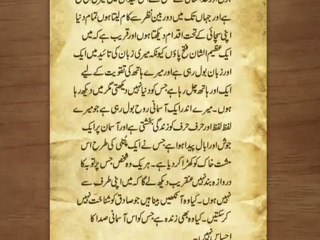 ہوں اور جہاں تک میں دوربین نظر سے کام لیتا ہوں تمام دنیا
اپنی سچائی کے تحت اقدام دیکھتا ہوں اور قریب ہے کہ میں
ایک عظیم الشان فتح پاؤں کیونکہ میری زبان کی تائید میں ایک
اور زبان بول رہی ہے اور میرے ہاتھ کی تقویت کے لیے
ایک اور ہاتھ چل رہا ہے جس کو دنیا نہیں دیکھتی مگر میں دیکھ رہا
ہوں۔ میرے اندر ایک آسمانی روح بول رہی ہے جو میرے
لفظ لفظ اور حرف حرف کو زندگی بخشتی ہے اور آسمان پر ایک
جوش اور ابال پیدا ہوا ہے جس نے ایک پتلی کی طرح اس
مشت خاک کو کھڑا کر دیا ہے۔ ہر یک وہ شخص جس پر توبہ کا
دروازہ بند نہیں عنقریب دیکھ لے گا کہ میں اپنی طرف سے
نہیں ہوں۔ کیا وہ آنکھیں بینا ہیں جو صادق کو شناخت نہیں
کر سکتیں۔ کیا وہ بھی زندہ ہے جس کو اس آسمانی صدا کا
احساس نہیں۔